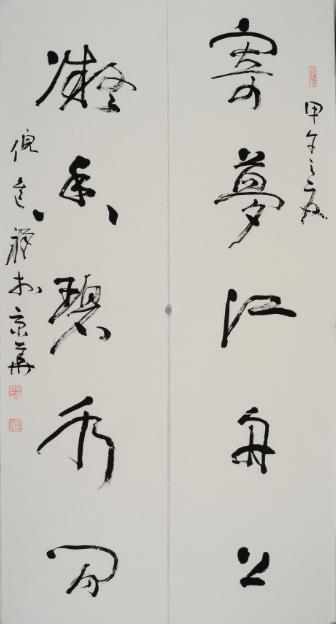 甲午之夏
寄夢江舟上
凝香碧秀間
倪祥於京華